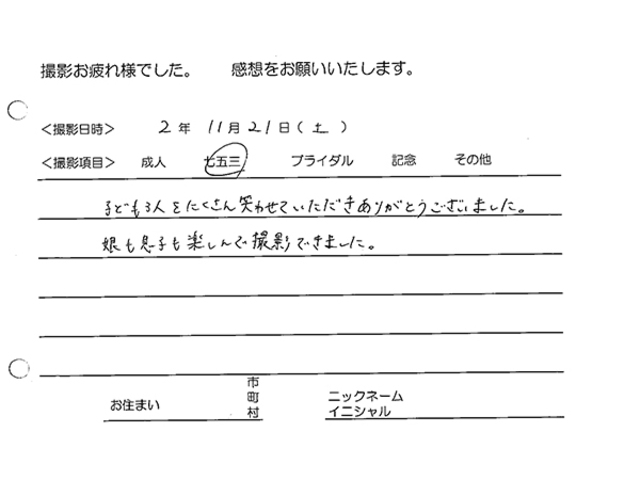 撮影お疲れ様でした。　感想をお願いいたします。
<撮影日時>　2年 11月21日(土)
<撮影項目>　成人　七五三　ブライダル　記念　その他
子ども3人をたくさん笑わせていただきありがとうございました。
娘も息子も楽しんで撮影できました。
お住まい　市町村　ニックネーム イニシャル